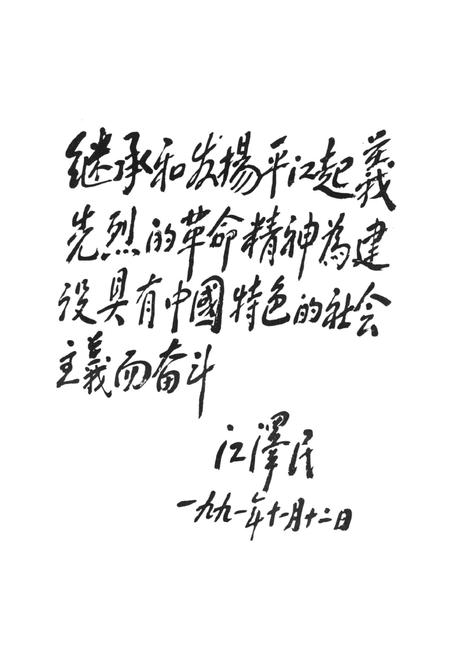 继承和发揚平江起義
先烈的革命精神為建
设具有中國特色的社会
主義而奋斗
江澤民
一九九一年十一月十二日